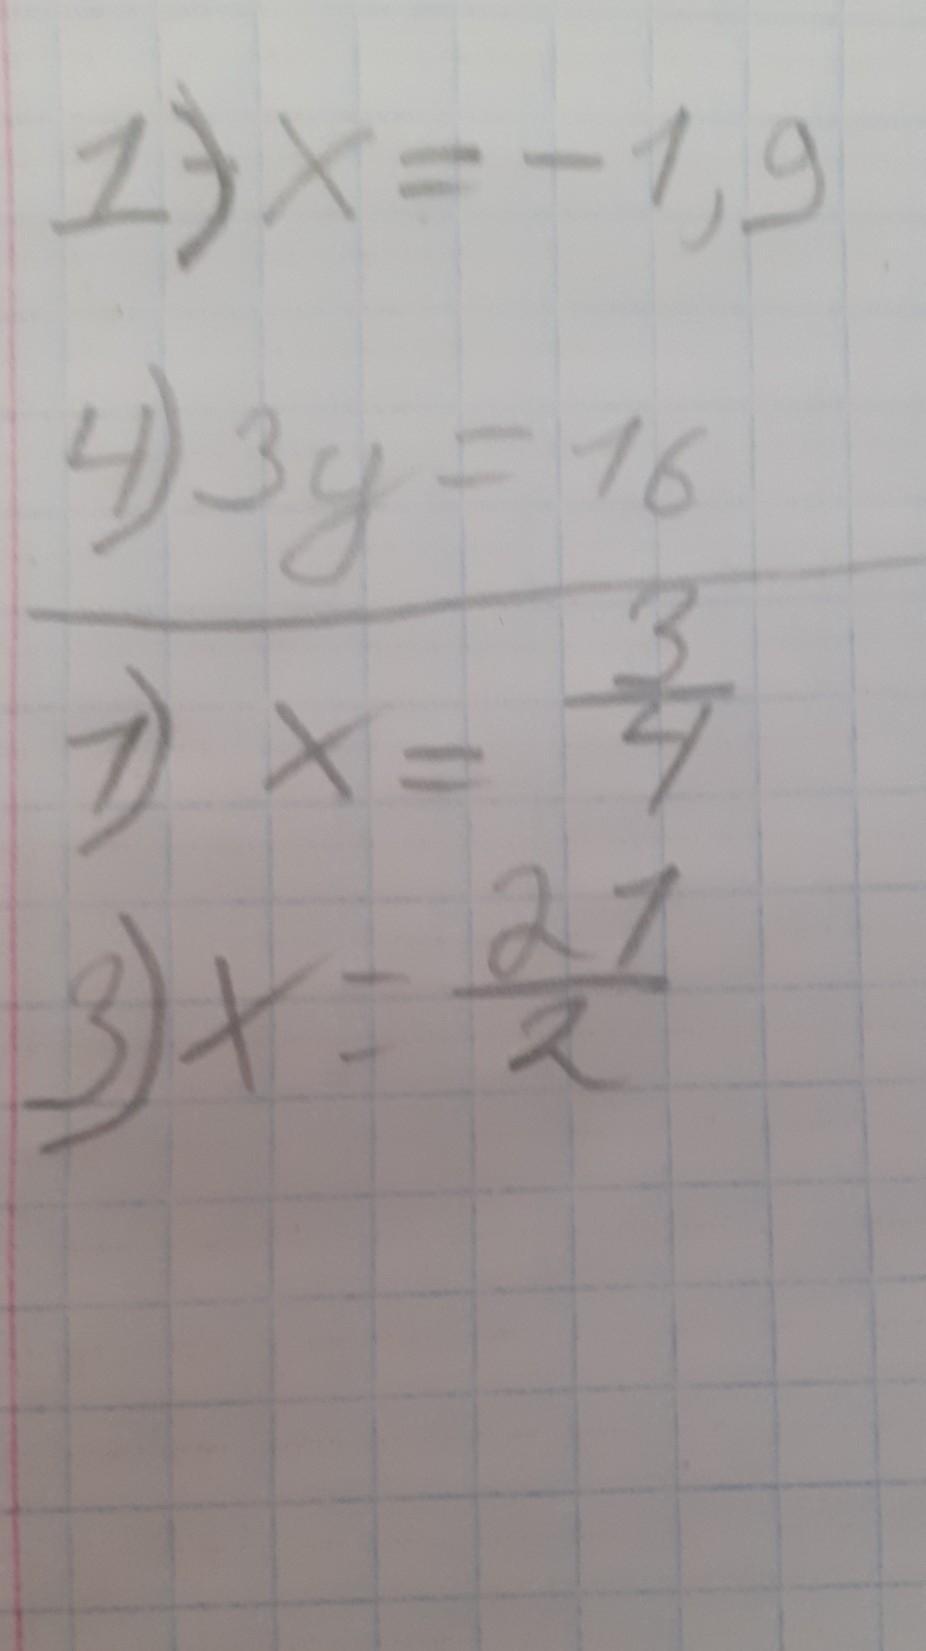 1) x = -1,9
4) 3y = 16
1) x = 3/4
3) x = 21/2